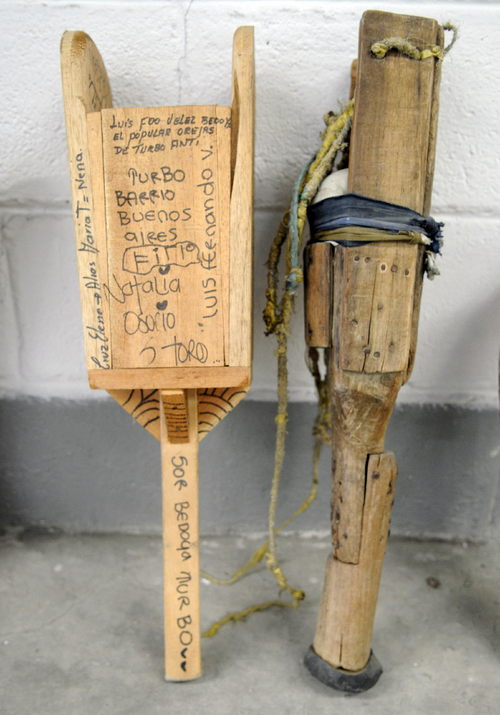 LUIS FDO VELEZ BEDOYA
EL POPULAR OREJAS
DE TURBO ANTI
TURBO
BARRIO
BUENOS
AIRES
Natalia
Osorio
TORO
LUIS Fernando V.
Luz Elene
Maria T = Nena.
SOR BEDOYA TURBO